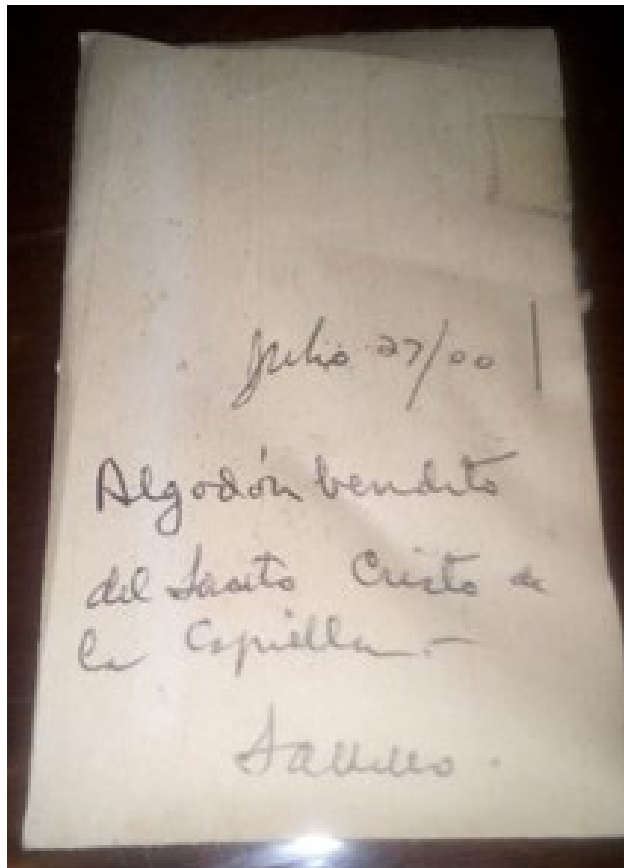 Julio 27/00
Algodón bendito
del Santo Cristo de
la Capilla.-
Saltillo.